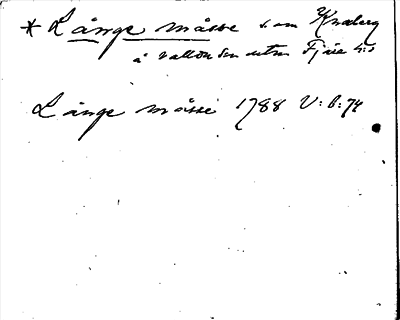 * Långe måsse s om Knaberg
å vallen den utm Fjäre h:d
Långe måsse 1788 V:6:74